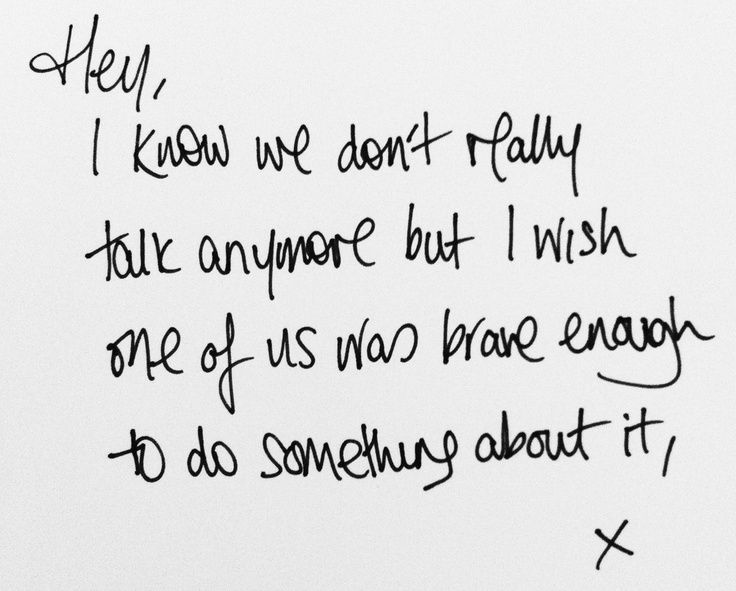 Hey,
I know we don't really
talk anymore but I wish
one of us was brave enough
to do something about it,
x